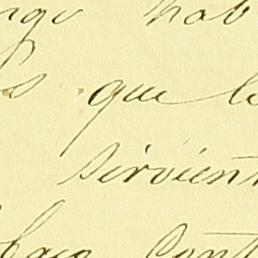 ngo hab
s que le
sirvient
Cont